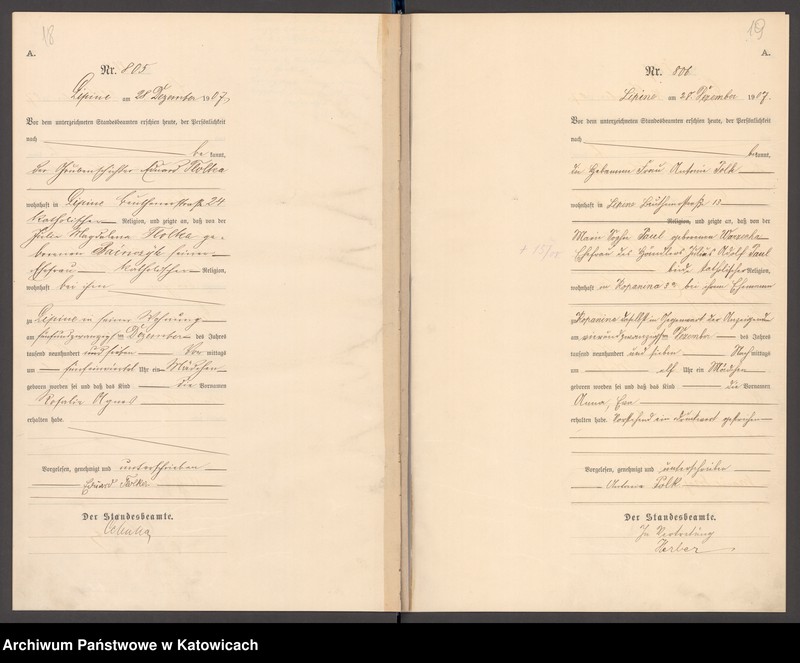 18
A.
Nr. 805
Lipine am 28 Dezember 1907
Vor dem unterzeichneten Standesbeamten erschien heute, der Persönlichkeit
nach
be kannt,
der Grubenschlosser Eduard
wohnhaft in Lipine Beuthenerstraße 24
katholischer Religion, und zeigte an, daß von der
Magdalena ge-
borenen seiner
Ehefrau katholischer Religion,
wohnhaft bei ihm
zu Lipine in seiner Wohnung
am fünfundzwanzigsten Dezember des Jahres
tausend neunhundert und sieben Vor mittags
um Uhr ein Mädchen
geboren worden sei und daß das Kind die Vornamen
Rosalie Agnes
erhalten habe.
Vorgelesen, genehmigt und unterschrieben
Eduard
Der Standesbeamte.
19
A.
Nr. 806
Lipine am 28 Dezember 1907.
Vor dem unterzeichneten Standesbeamten erschien heute, der Persönlichkeit
nach
bekannt,
die Hebamme Frau Antonie Polk
wohnhaft in Lipine Beuthenerstraße 11
Religion, und zeigte an, daß von der
Marie Sophie Paul geborenen
Ehefrau des Händlers Julius Adolf Paul
beide katholischer Religion,
wohnhaft in Kopanina bei ihrem Ehemann
zu Kopanina daselbst in Gegenwart der Anzeigenden
am vierundzwanzigsten Dezember des Jahres
tausend neunhundert und sieben Nach mittags
um elf Uhr ein Mädchen
geboren worden sei und daß das Kind die Vornamen
Anna, Eva
erhalten habe. Vorstehend ein Druckwort gestrichen
Vorgelesen, genehmigt und unterschrieben
Antonie Polk
Der Standesbeamte.
In Vertretung
Archiwum Państwowe w Katowicach